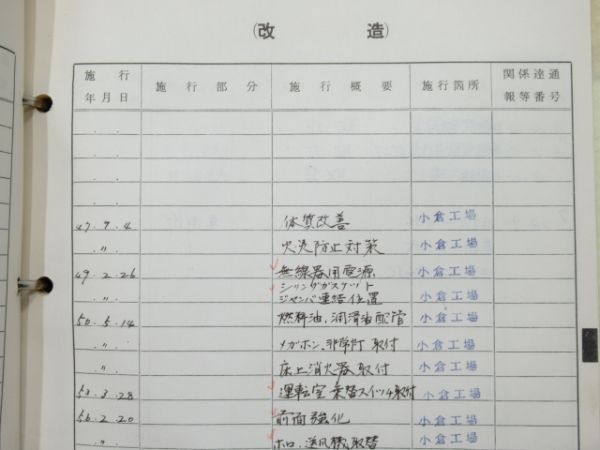 (改 造)
施行年月日 施行部分 施行概要 施行箇所 関係達通報等番号
47.9.4 体質改善 小倉工場
〃 火災防止対策 小倉工場
49.2.26 無線器用電源 小倉工場
シリンダガスケット
〃 ジャンパ連結位置 小倉工場
50.5.14 燃料油、潤滑油配管 小倉工場
〃 メガホン、非常灯取付 小倉工場
床上消火器取付 小倉工場
53.3.28 運転室乗替スイッチ取付 小倉工場
56.2.20 前面強化 小倉工場
〃 ホロ、送風機取替 小倉工場